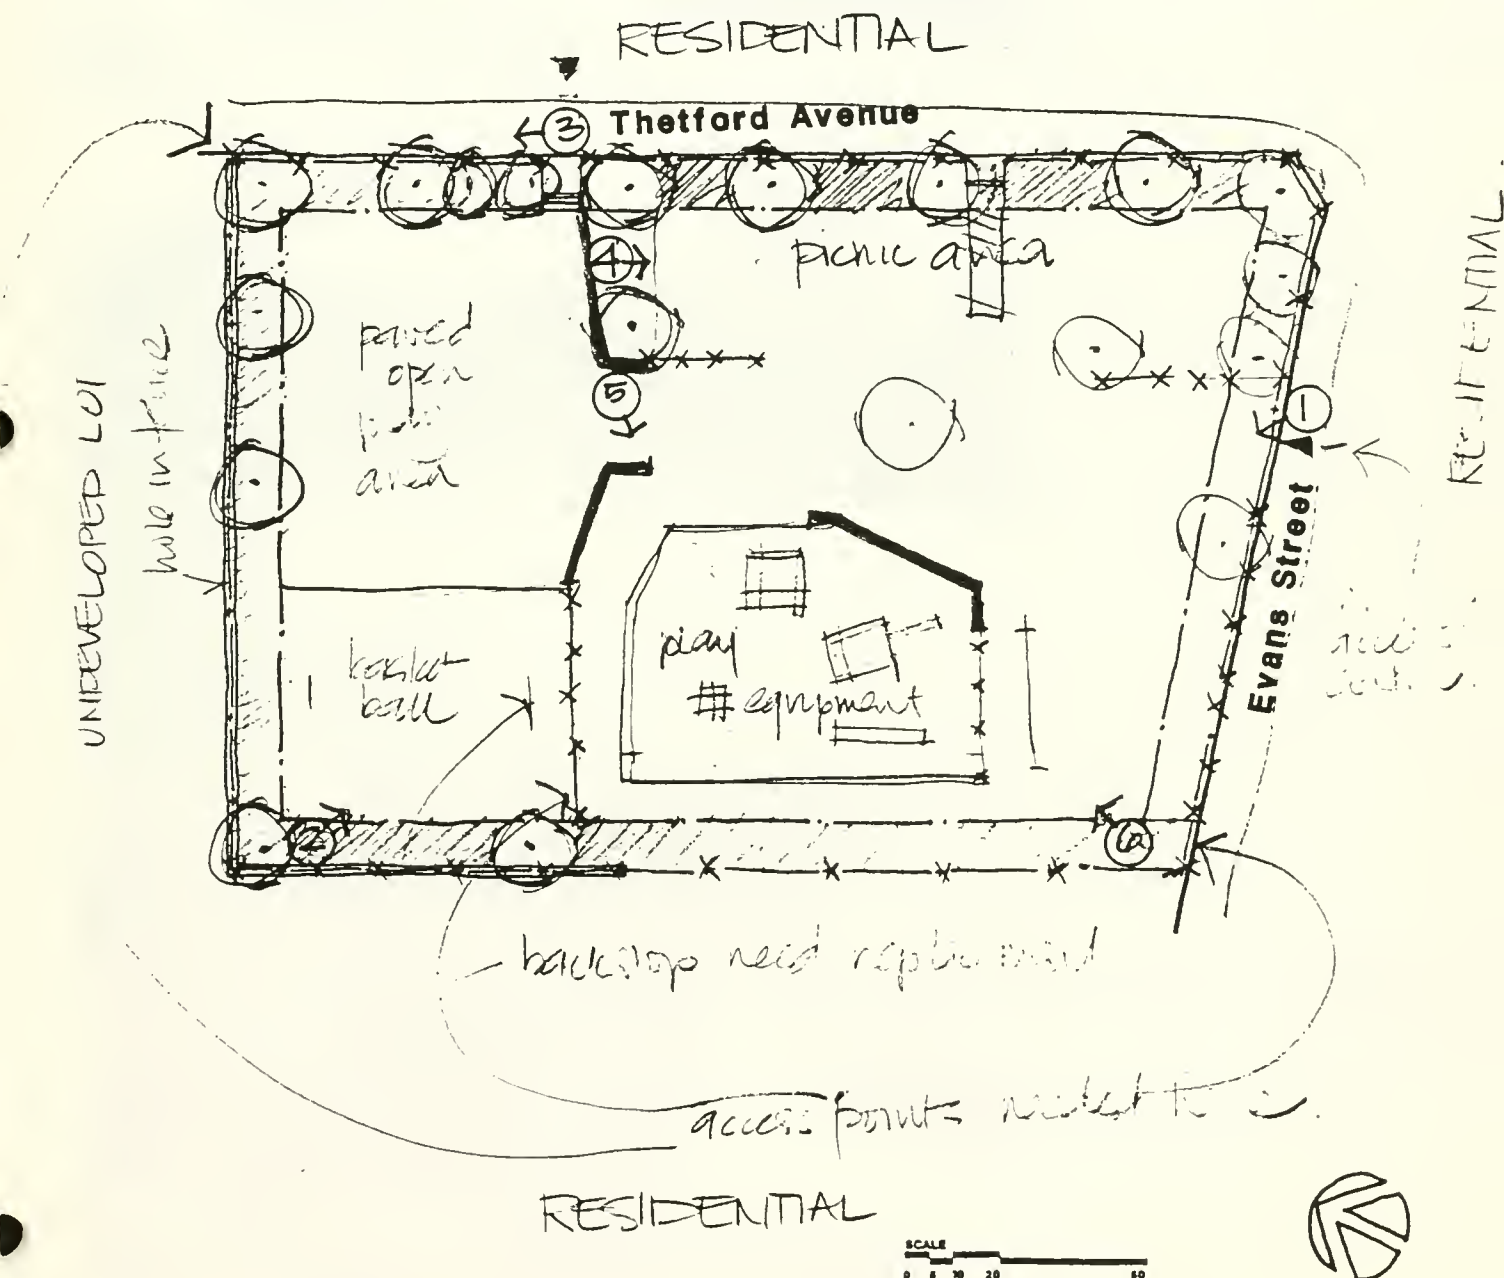 RESIDENTIAL
3
Thetford Avenue
4
picnic area
paved
open
area
5
1
RESIDENTIAL
UNDEVELOPED LOT
hole in fence
Evans Street
basket
ball
play
equipment
2
6
backstop need replacement
access points
RESIDENTIAL
SCALE
0 5 10 20 50